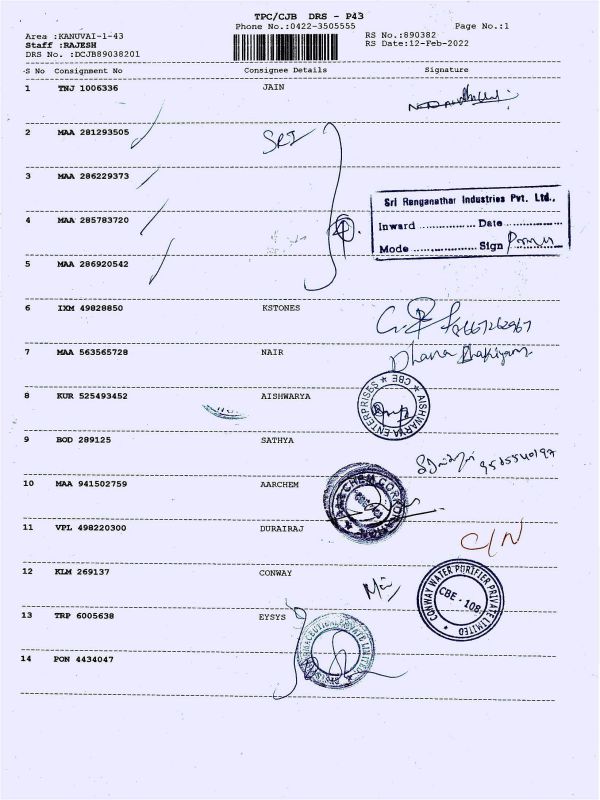 TPC/CJB DRS - P43
Phone No.:0422-3505555 Page No.:1
Area :KANUVAI-1-43 RS No.:890382
Staff :RAJESH RS Date:12-Feb-2022
DRS No. :DCJB89038201
S No Consignment No Consignee Details Signature
1 TNJ 1006336 JAIN
2 MAA 281293505 SRI
3 MAA 286229373
Sri Ranganathar Industries Pvt. Ltd.,
4 MAA 285783720 4
Inward .................. Date ..................
Mode .................. Sign ..................
5 MAA 286920542
6 IXM 49828850 KSTONES
7 MAA 563565728 NAIR
Dhana
8 KUR 525493452 AISHWARYA
AISHWARYA ENTERPRISES ★ CBE ★
9 BOD 289125 SATHYA
10 MAA 941502759 AARCHEM
11 VPL 498220300 DURAIRAJ C/N
12 KLM 269137 CONWAY
CONWAY WATER PURIFIER PRIVATE LIMITED ★
CBE - 108
13 TRP 6005638 EYSYS
PRIVATE LIMITED
14 PON 4434047